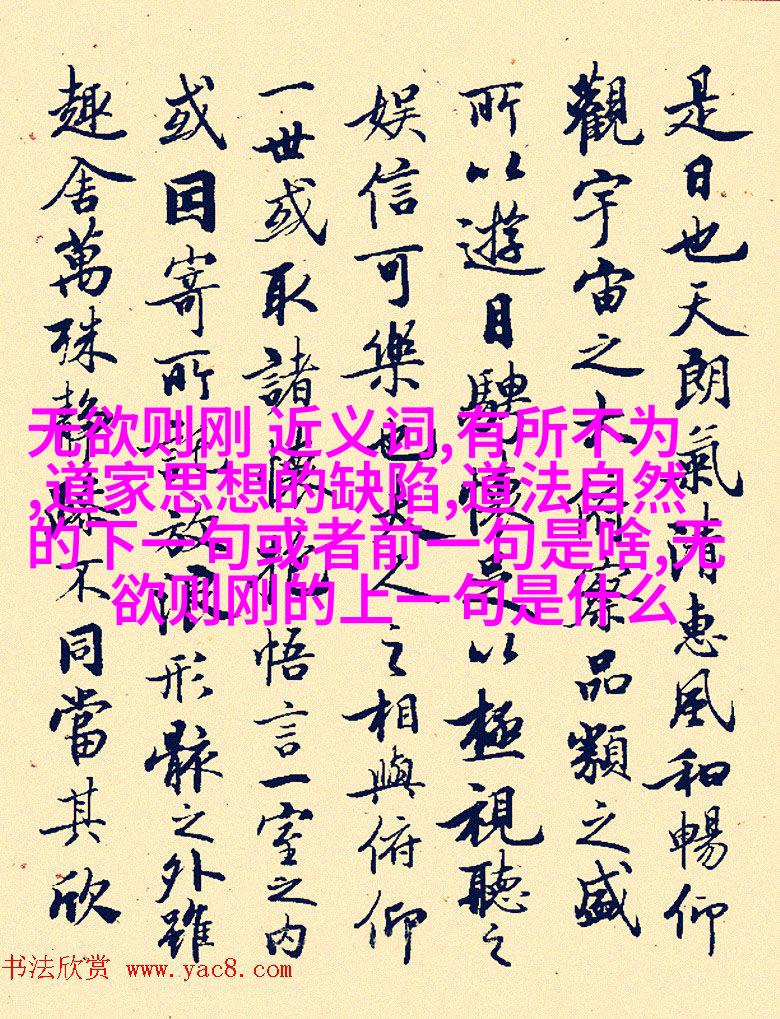 是日也天朗氣清惠風和暢仰
觀宇宙之大俯察品類之盛
所以遊目騁懷足以極視聽之
娛信可樂也夫人之相與俯仰
一世或取諸懷抱悟言一室之內
或因寄所託放浪形骸之外雖
趣舍萬殊靜躁不同當其欣
无欲则刚 近义词,有所不为
,道家思想的缺陷,道法自然
的下一句或者前一句是啥,无
欲则刚的上一句是什么
书法欣赏 www.yac8.com